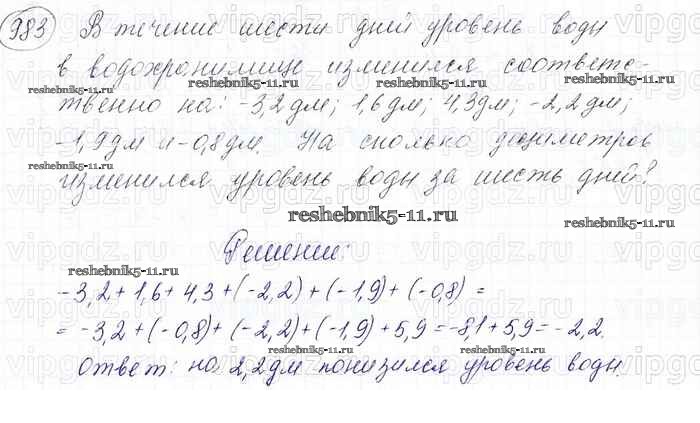 983 В течение шести дней уровень воды
в водохранилище изменился соответс-
твенно на: -3,2дм; 1,6дм; 4,3дм; -2,2дм;
-1,9дм и -0,8дм. На сколько дециметров
изменился уровень воды за шесть дней?
reshebnik5-11.ru
Решение:
-3,2+1,6+4,3+(-2,2)+(-1,9)+(-0,8)=
=-3,2+(-0,8)+(-2,2)+(-1,9)+5,9=-8,1+5,9=-2,2.
Ответ: на 2,2дм понизился уровень воды.